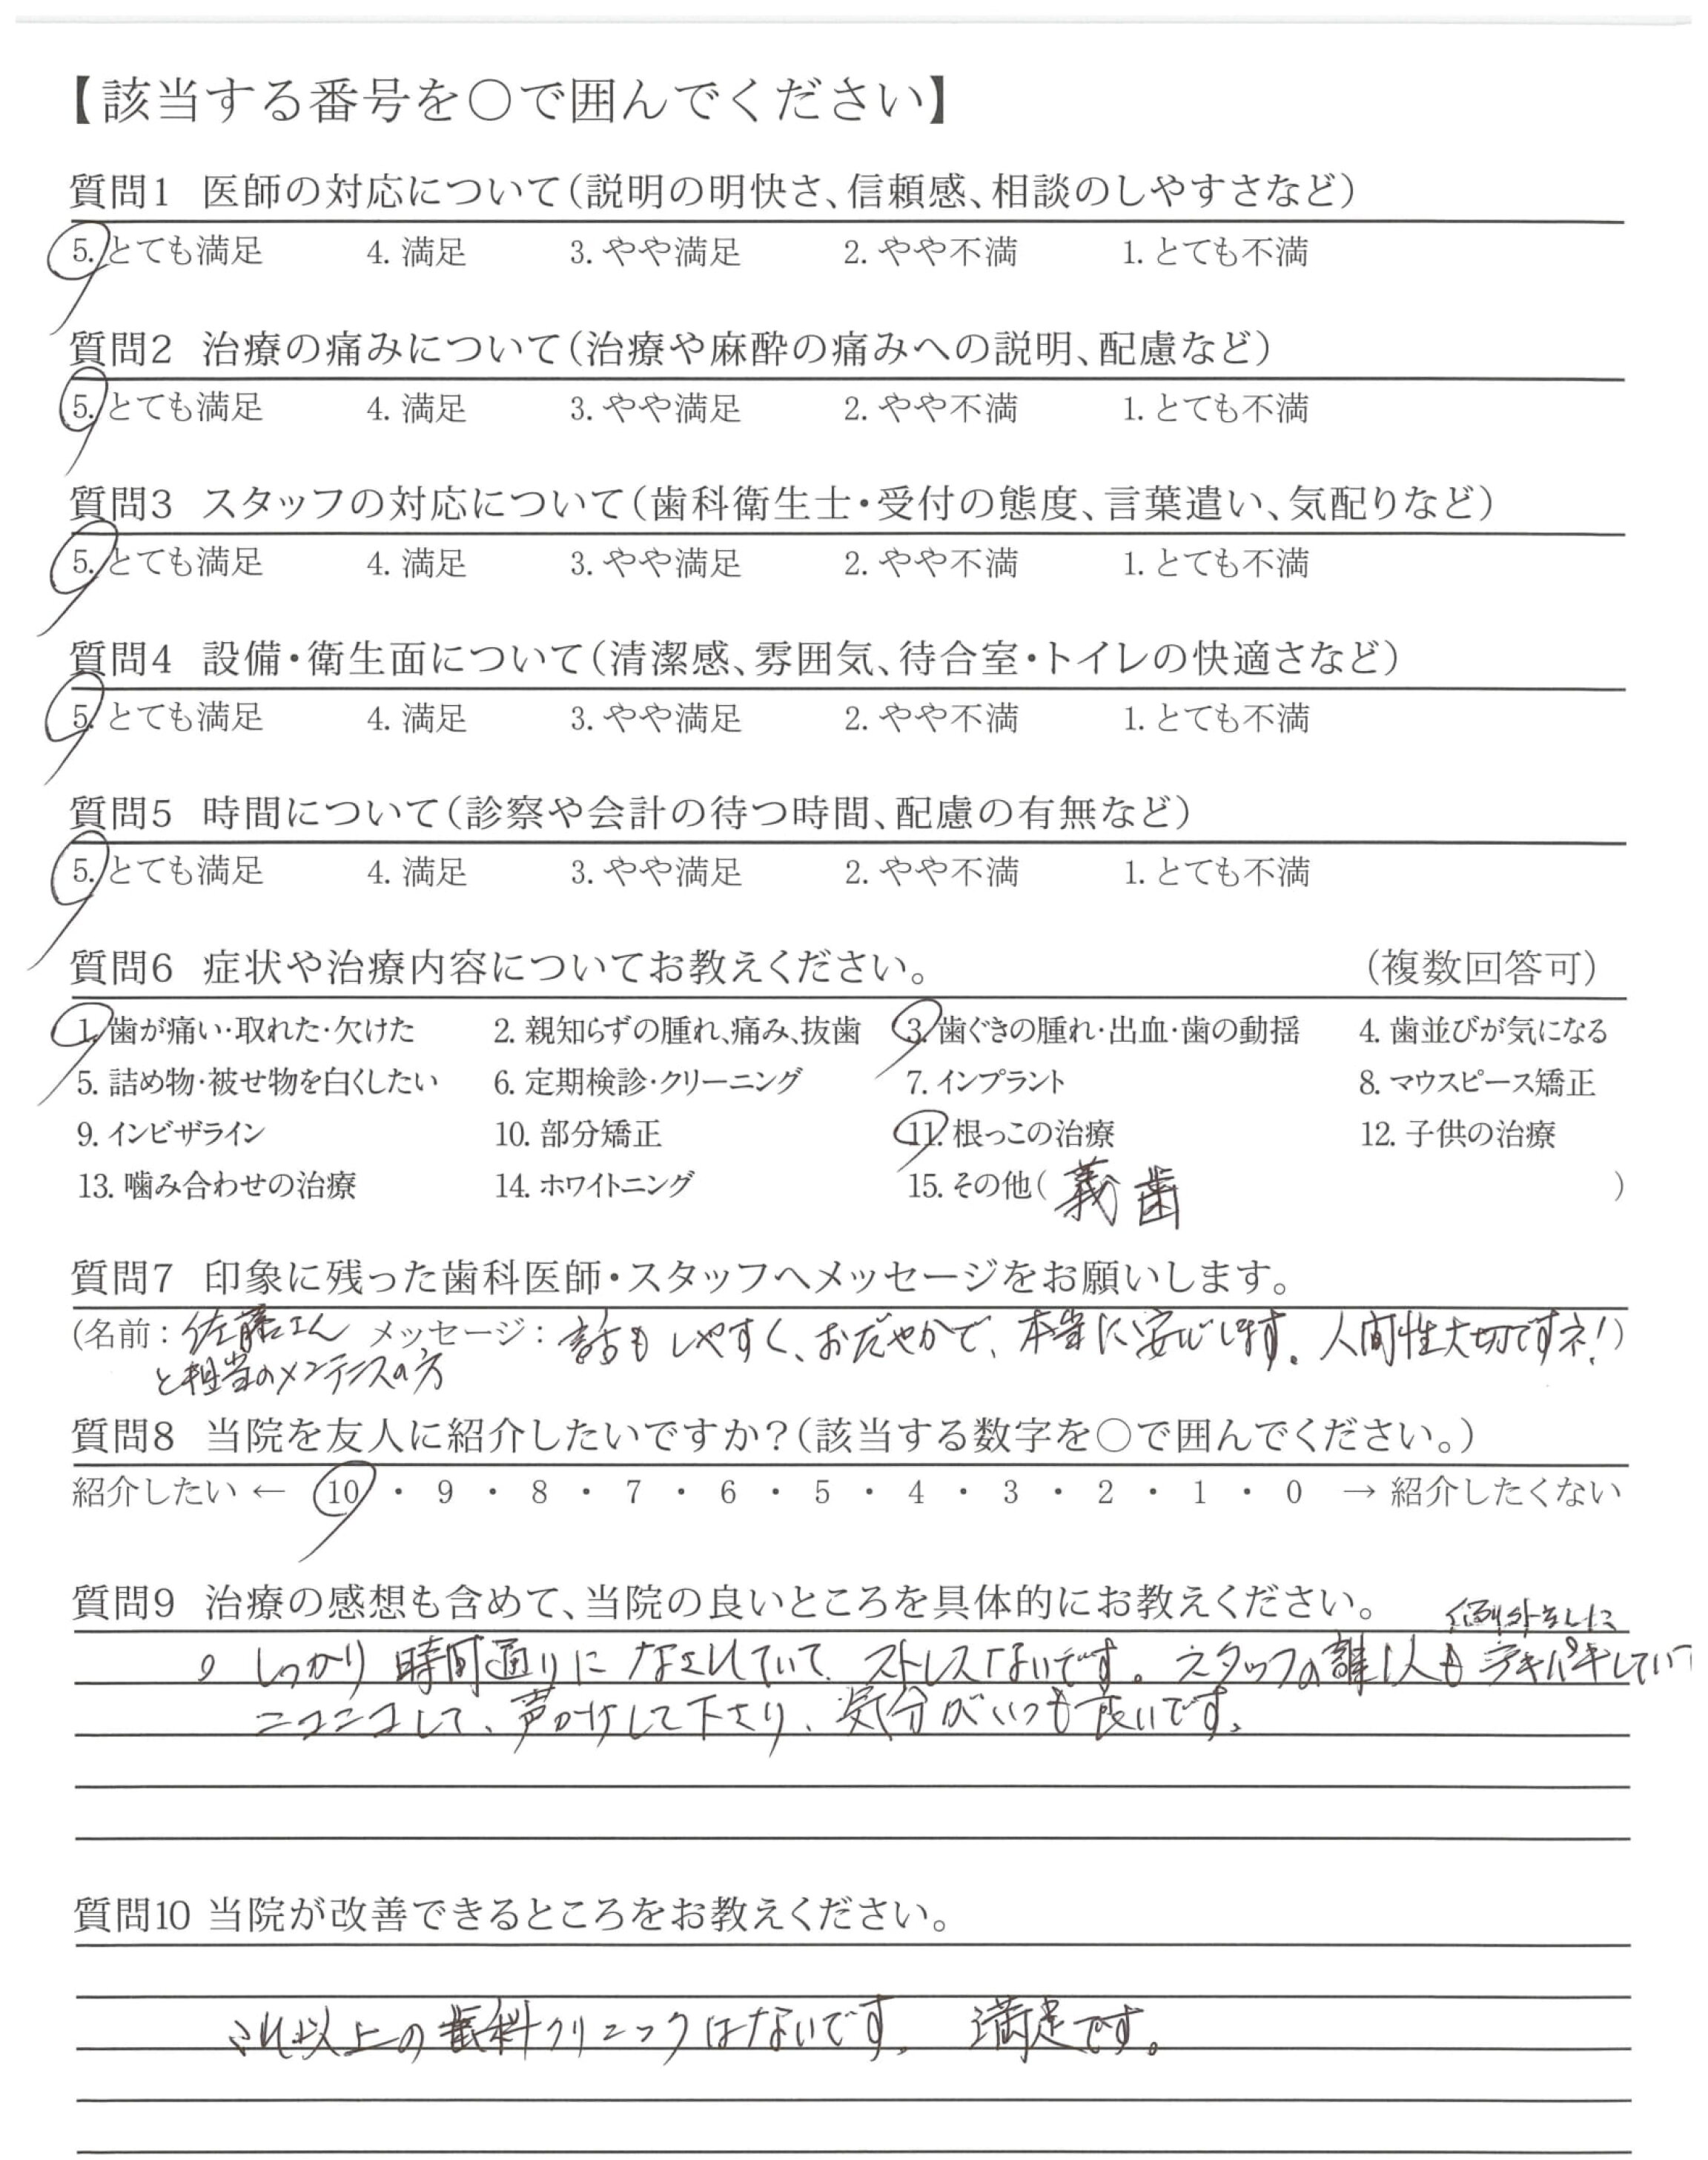 【該当する番号を○で囲んでください】
質問1 医師の対応について(説明の明快さ、信頼感、相談のしやすさなど)
5. とても満足 4. 満足 3. やや満足 2. やや不満 1. とても不満
質問2 治療の痛みについて(治療や麻酔の痛みへの説明、配慮など)
5. とても満足 4. 満足 3. やや満足 2. やや不満 1. とても不満
質問3 スタッフの対応について(歯科衛生士・受付の態度、言葉遣い、気配りなど)
5. とても満足 4. 満足 3. やや満足 2. やや不満 1. とても不満
質問4 設備・衛生面について(清潔感、雰囲気、待合室・トイレの快適さなど)
5. とても満足 4. 満足 3. やや満足 2. やや不満 1. とても不満
質問5 時間について(診察や会計の待つ時間、配慮の有無など)
5. とても満足 4. 満足 3. やや満足 2. やや不満 1. とても不満
質問6 症状や治療内容についてお教えください。 (複数回答可)
1. 歯が痛い・取れた・欠けた 2. 親知らずの腫れ、痛み、抜歯 3. 歯ぐきの腫れ・出血・歯の動揺 4. 歯並びが気になる
5. 詰め物・被せ物を白くしたい 6. 定期検診・クリーニング 7. インプラント 8. マウスピース矯正
9. インビザライン 10. 部分矯正 11. 根っこの治療 12. 子供の治療
13. 噛み合わせの治療 14. ホワイトニング 15. その他( 義歯 )
質問7 印象に残った歯科医師・スタッフへメッセージをお願いします。
(名前: 佐藤さん メッセージ: 話もしやすく、おだやかで、本当に安心します。人間性大切ですネ!)
と担当のメンテナンスの方
質問8 当院を友人に紹介したいですか?(該当する数字を○で囲んでください。)
紹介したい ← 10 ・ 9 ・ 8 ・ 7 ・ 6 ・ 5 ・ 4 ・ 3 ・ 2 ・ 1 ・ 0 → 紹介したくない
質問9 治療の感想も含めて、当院の良いところを具体的にお教えください。
例外なしに
しっかり時間通りになされていて、ストレスないです。スタッフの誰1人もテキパキしていて
ニコニコして、声かけして下さり、気分がいつも良いです。
質問10 当院が改善できるところをお教えください。
これ以上の歯科クリニックはないです。 満足です。